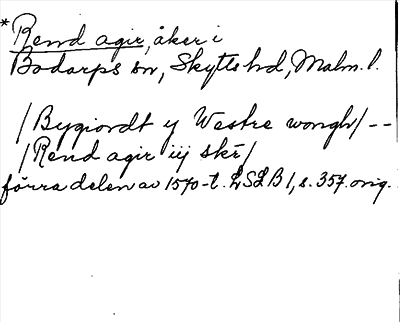 *Rend agir, åker i
Bodarps sn, Skytts hd, Malm. l.
/Bygiordt y Westre wongh/ --
/Rend agir iij skr̄/
förra delen av 1570-t. LSLB 1, s. 357. orig.